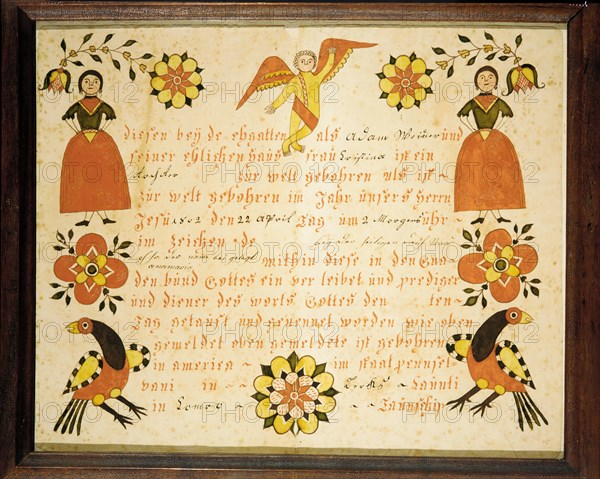 diesen beÿ de ehgatten als Adam Weiser und
seiner ehlichen haus frau Cristina ist ein
Tochter zur welt gebohren als ist
zür welt gebohren im Jahr ünsers herrn
Jesü 1802 den 22 April Tag um 2 Morgens ühr
im zeichen de
mithin diese in den Gna
den bünd Gottes ein ver leibet und prediger
und diener des worts Gottes den ten
Tag getauft und genennet worden wie oben
gemeldet eben gemeldete ist gebohren
in america im staat pennsel
vani in Berks Caunti
in Taunschip